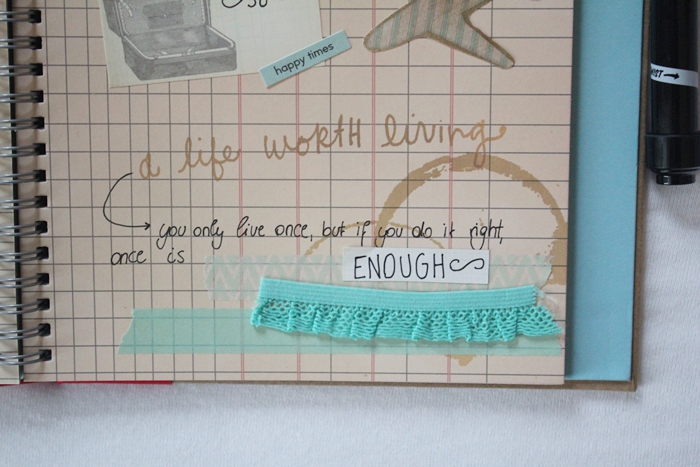 happy times
a life worth living
you only live once, but if you do it right,
once is ENOUGH